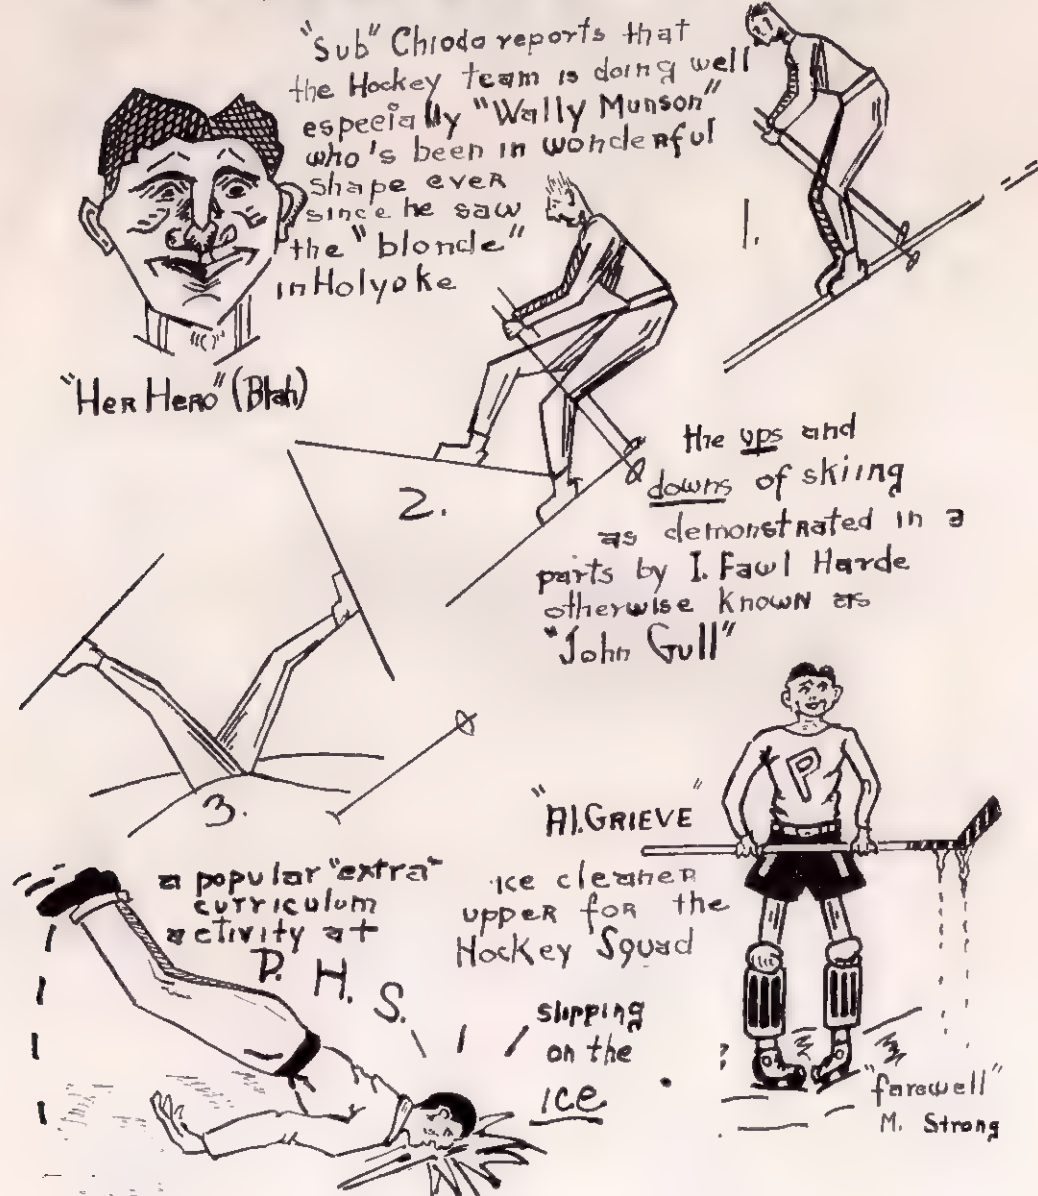 "Sub" Chiodo reports that
the Hockey team is doing well
especially "Wally Munson"
who's been in wonderful
shape ever
since he saw
the "blonde"
in Holyoke
"Her Hero" (Blah)
1.
2.
the ups and
downs of skiing
as demonstrated in 3
parts by I. Fawl Harde
otherwise known as
"John Gull"
3.
"Al. GRIEVE"
ice cleaner
upper for the
Hockey Squad
P
a popular "extra"
curriculum
activity at
P. H. S.
slipping
on the
ice
"farewell"
M. Strong